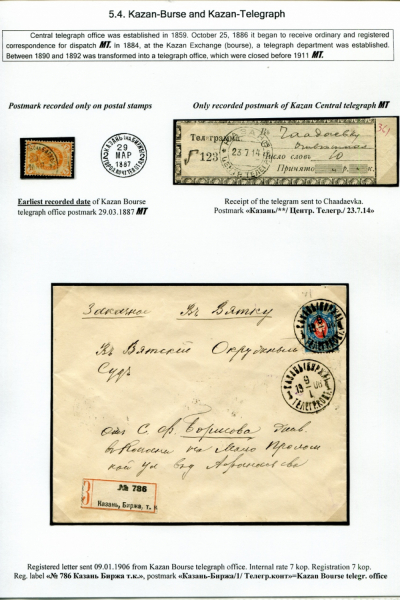 5.4. Kazan-Burse and Kazan-Telegraph
Central telegraph office was established in 1859. October 25, 1886 it began to receive ordinary and registered
correspondence for dispatch MT. in 1884, at the Kazan Exchange (bourse), a telegraph department was established.
Between 1890 and 1892 was transformed into a telegraph office, which were closed before 1911 MT.
Postmark recorded only on postal stamps
Only recorded postmark of Kazan Central telegraph MT
29
МАР
1887
Телеграмма
Чаадаевку
№123
23.7.14
Число словъ 10
Принято р. к.
Earliest recorded date of Kazan Bourse
telegraph office postmark 29.03.1887 MT
Receipt of the telegram sent to Chaadaevka.
Postmark «Казань/**/ Центр. Телегр./ 23.7.14»
Заказное Въ Вятку
Въ Вятскій Окружный
Судъ
КАЗАНЬ БИРЖА
9
1
ТЕЛЕГР. КОНТ.
отъ С. Ф. Борисова
3
№ 786
Казань, Биржа, т. к
Registered letter sent 09.01.1906 from Kazan Bourse telegraph office. Internal rate 7 kop. Registration 7 kop.
Reg. label «№ 786 Казань Биржа т.к.», postmark «Казань-Биржа/1/ Телегр.конт»=Kazan Bourse telegr. office